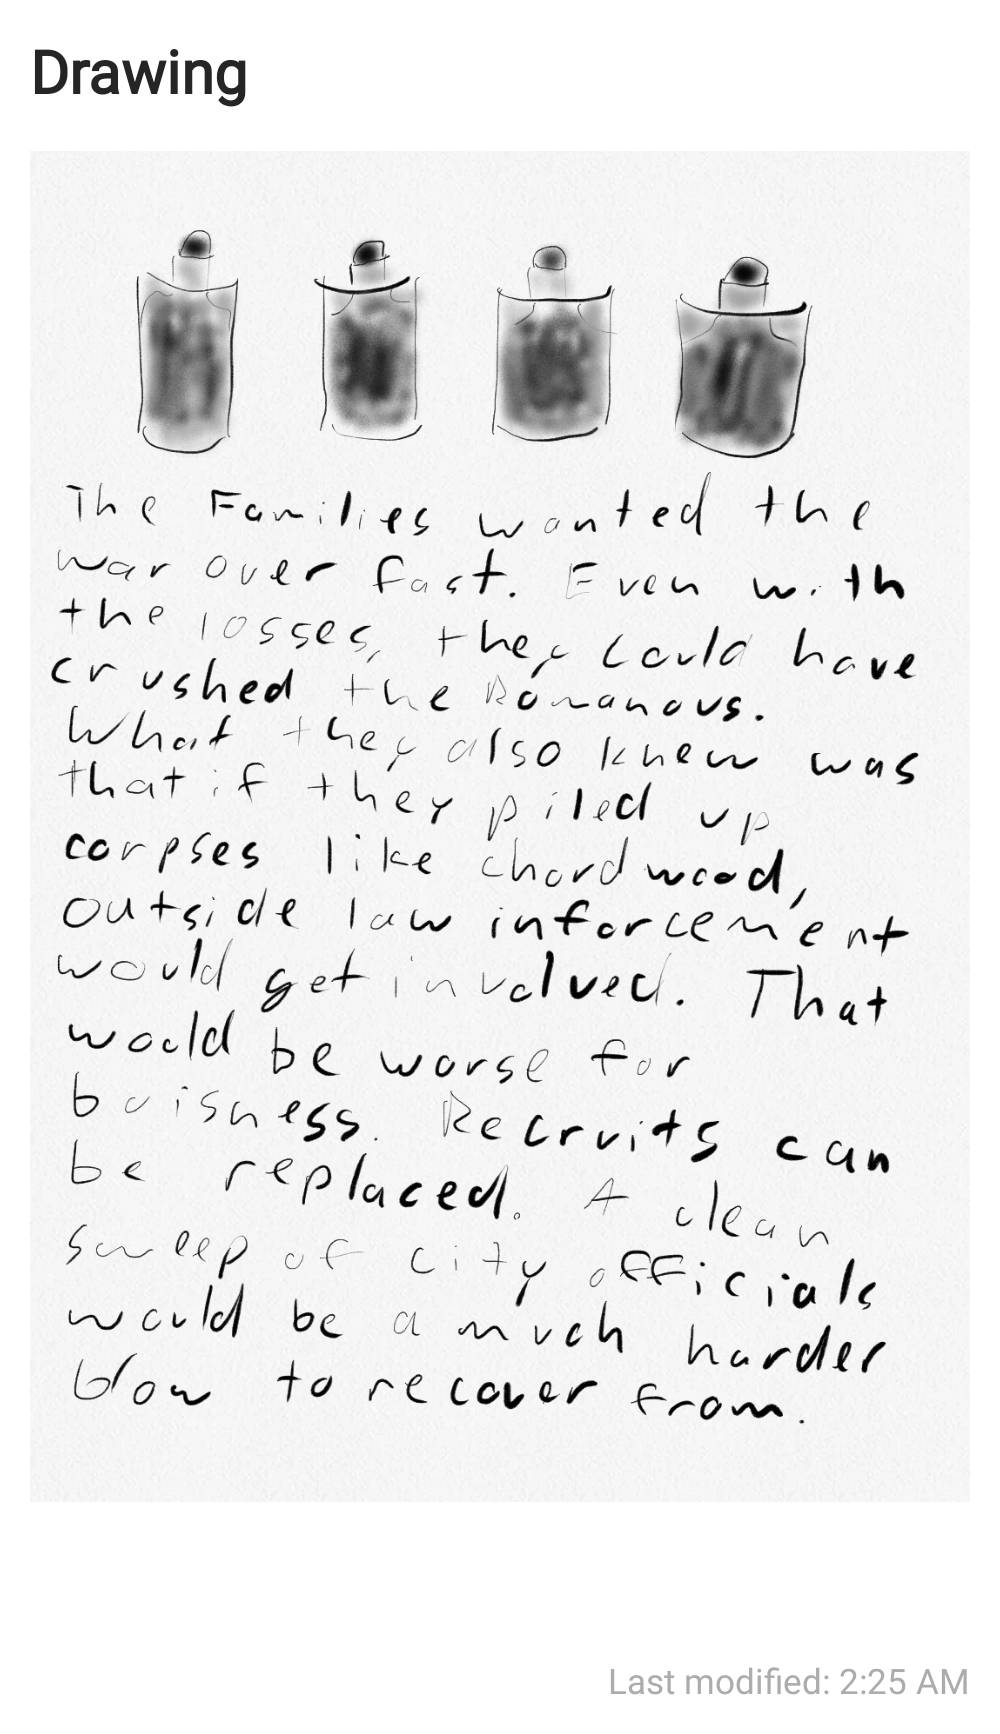 Drawing
The Families wanted the
war over fast. Even with
the losses, they could have
crushed the Romanovs.
What they also knew was
that if they piled up
corpses like chordwood,
outside law inforcement
would get involved. That
would be worse for
buisness. Recruits can
be replaced. A clean
sweep of city officials
would be a much harder
blow to recover from.
Last modified: 2:25 AM